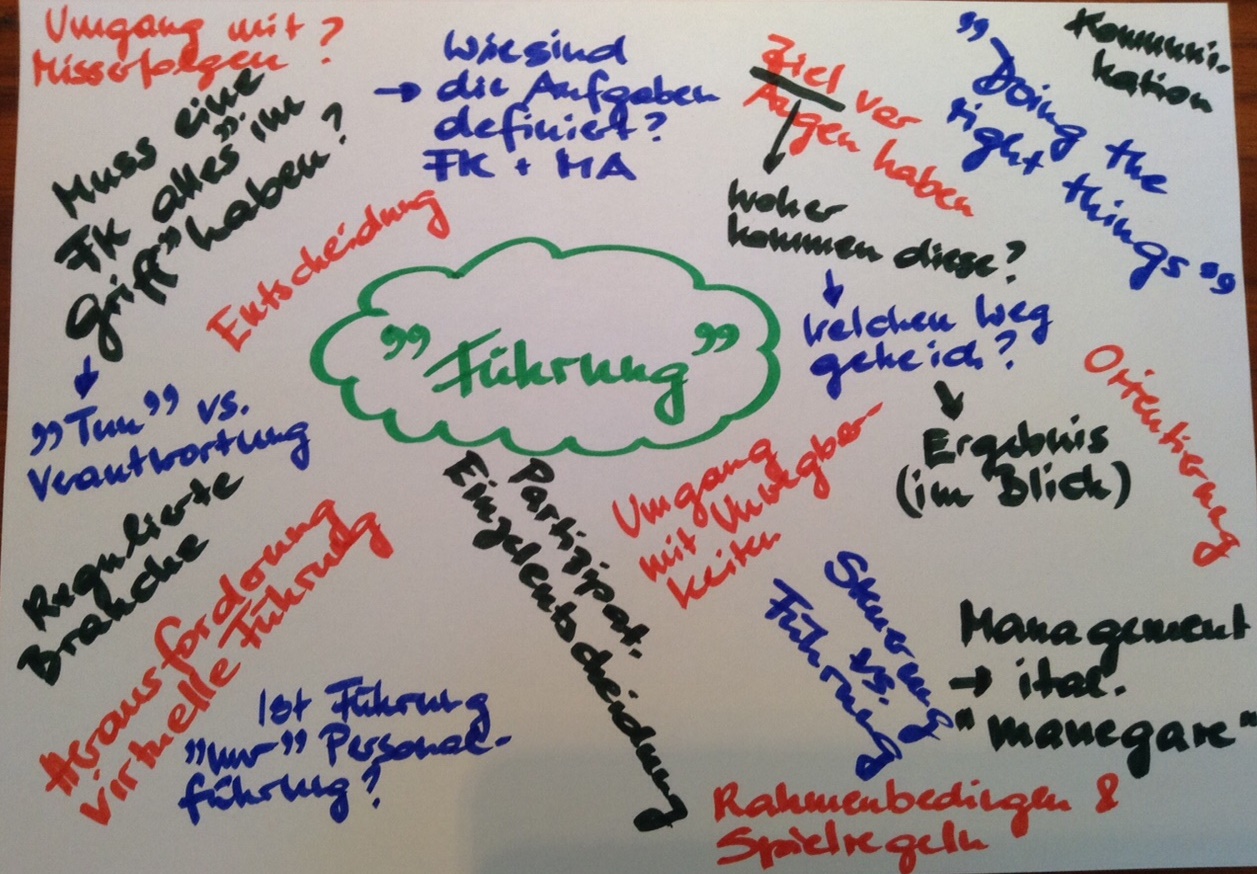 Umgang mit
Misserfolgen?
Muss eine
FK "alles" im
Griff" haben?
"Tun" vs.
Verantwortung
→ Wie sind
die Aufgaben
definiert?
FK + MA
Entscheidung
Ziel vor
Augen haben
Woher
kommen diese?
Welchen Weg
gehe ich?
Ergebnis
(im Blick)
"Doing the
right things"
Kommuni-
kation
Orientierung
"Führung"
Regulierte
Branche
Herausforderung
Virtuelle Führung
Ist Führung
"nur" Personal-
führung?
Partizipat.
Einzelentscheidung
Umgang
mit Unwägbar-
keiten
Steuerung
vs.
Führung
Management
→ ital.
"manegare"
Rahmenbedingen &
Spielregeln